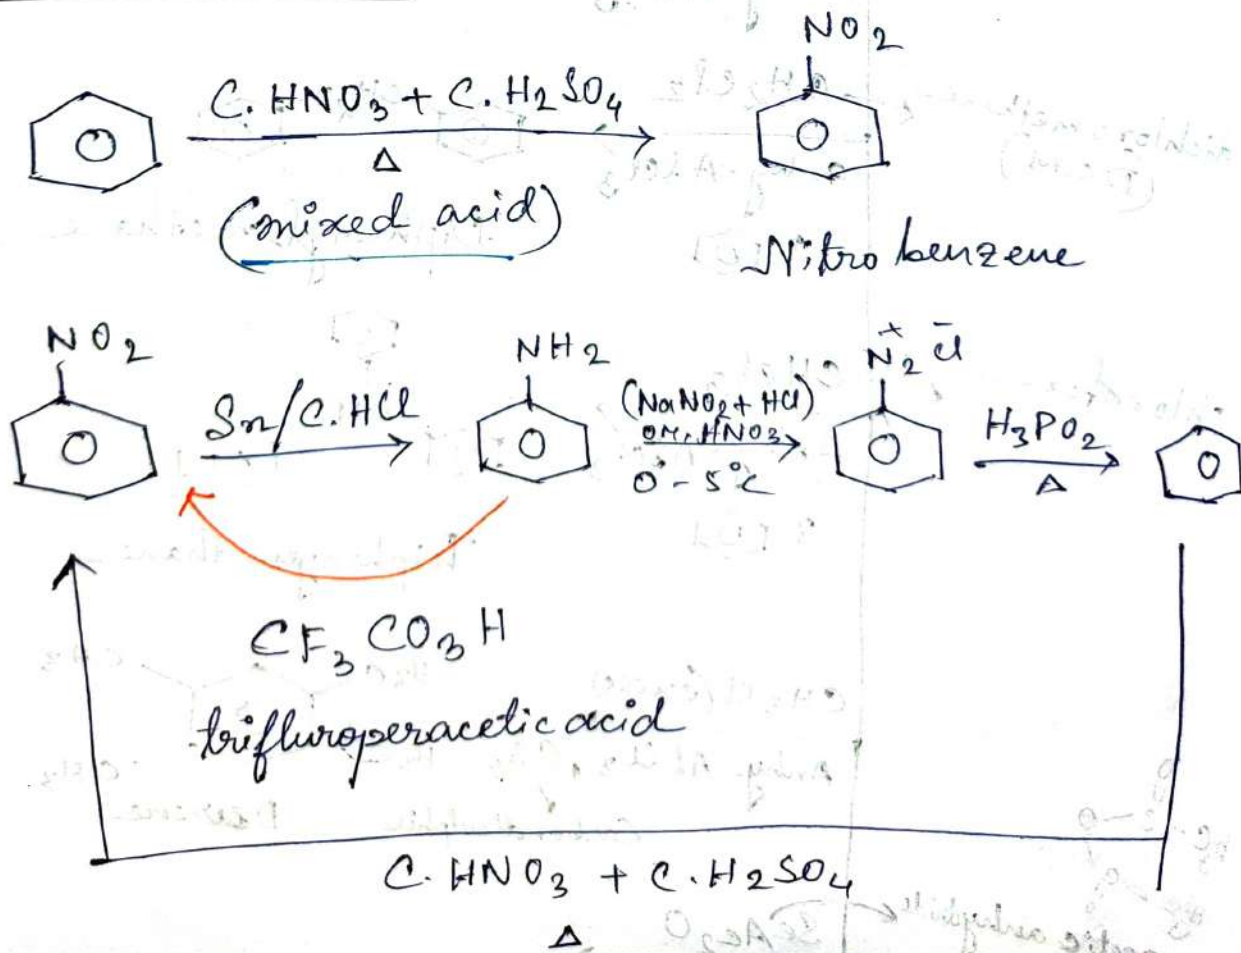 NO2
C. HNO3 + C. H2SO4
Δ
(mixed acid)
Nitrobenzene
NO2
Sn/C.HCl
NH2
(NaNO2 + HCl)
or, HNO3
0° - 5°C
N2+ Cl-
H3PO2
Δ
CF3CO3H
trifluroperacetic acid
C. HNO3 + C. H2SO4
Δ